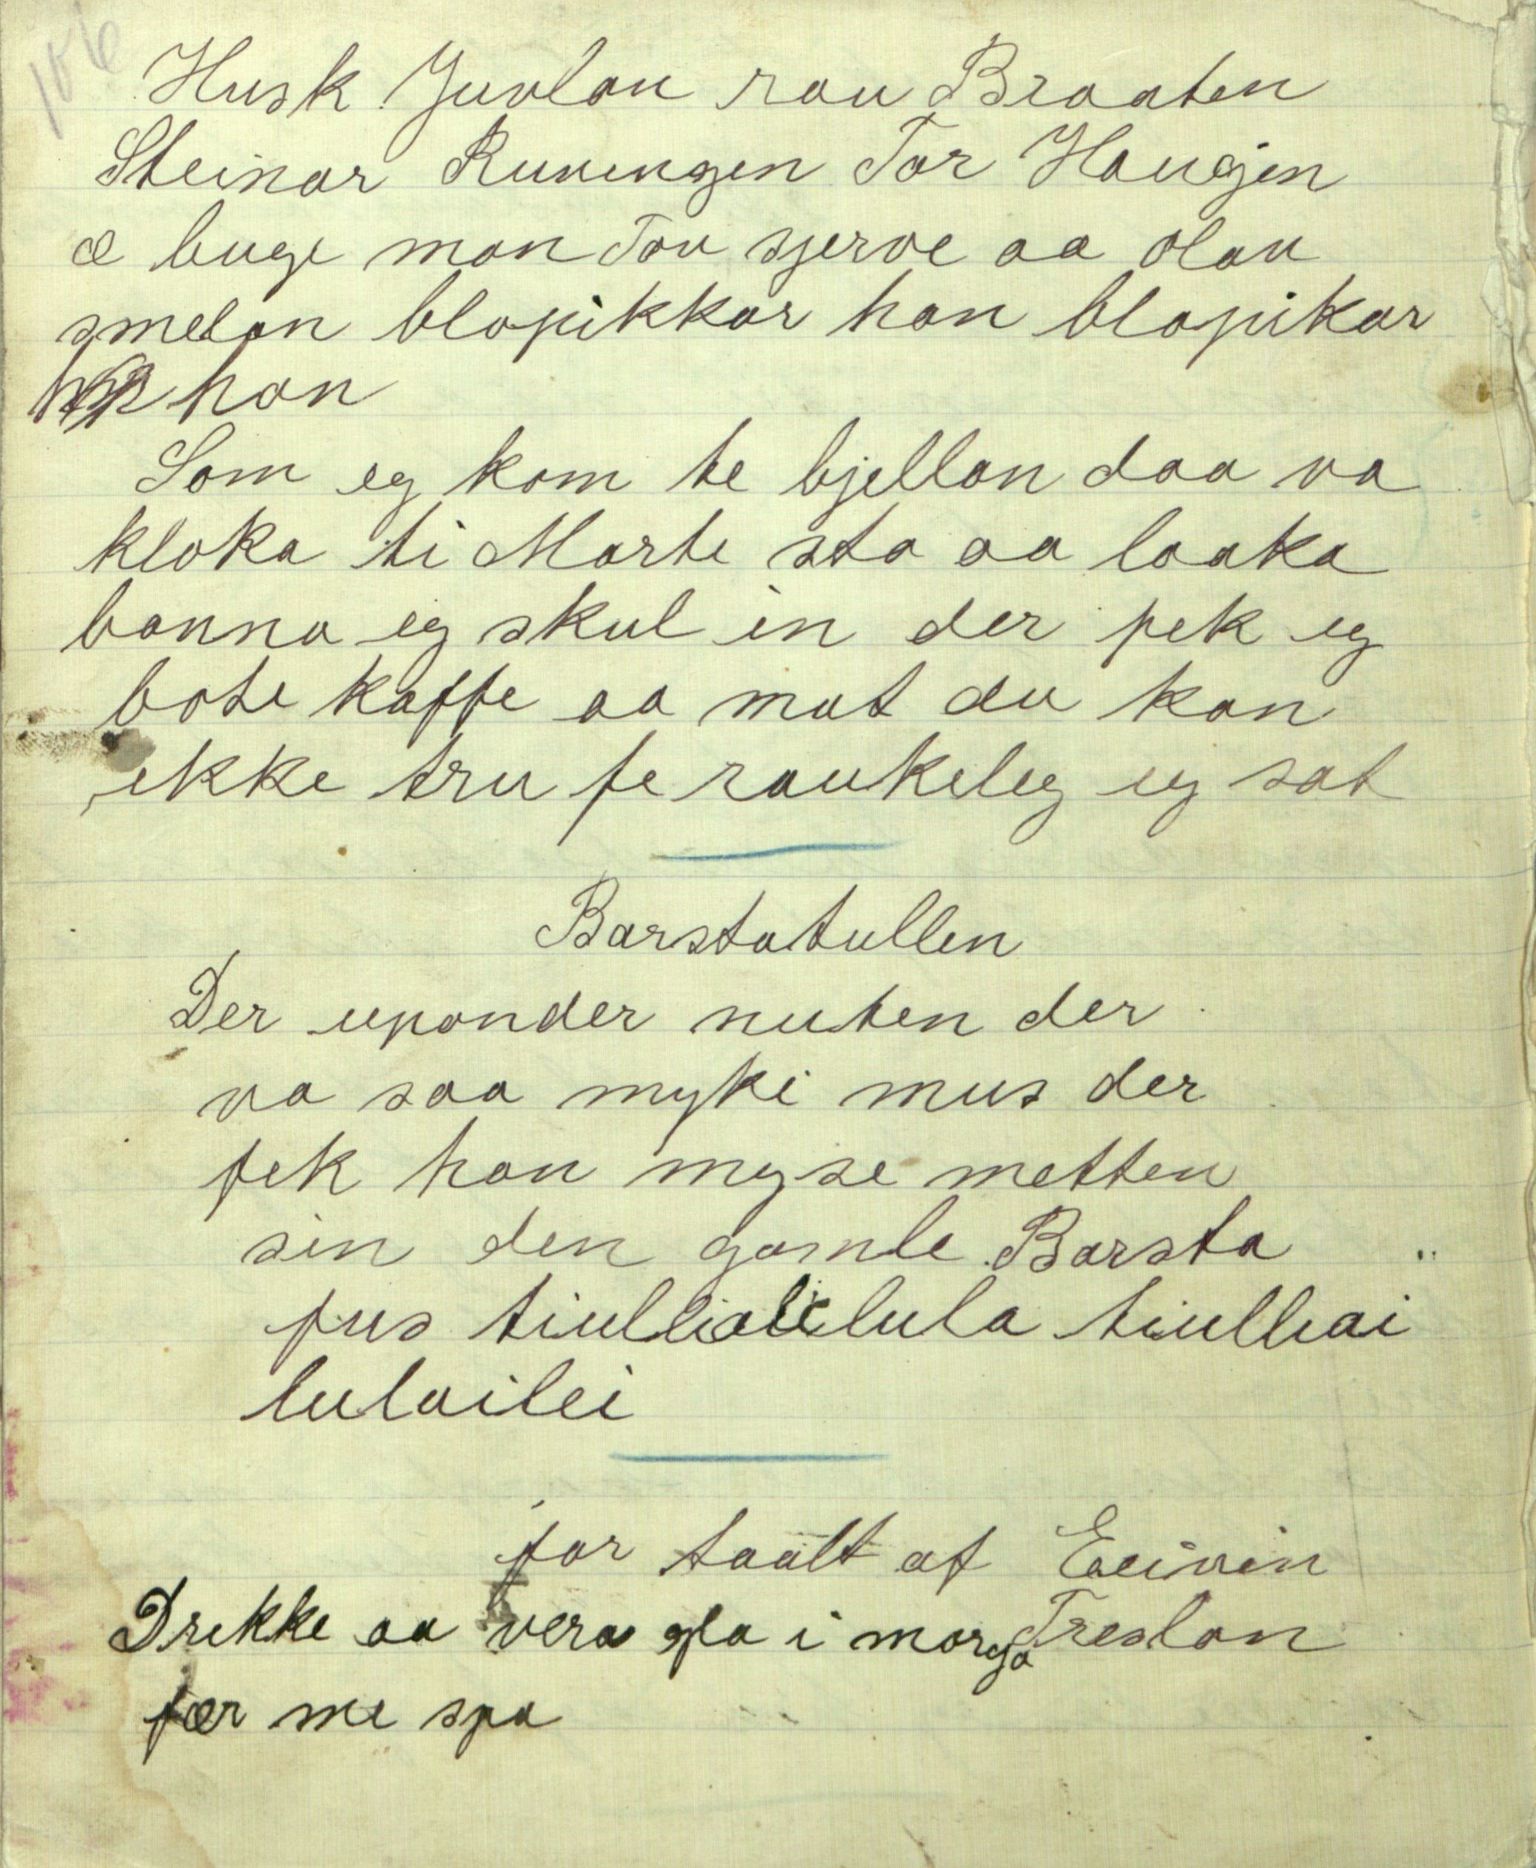 106
Husk Juvlan rau Braaten
Steinar Ruvengen Tor Haugjen
æ buge man Tov sjerve aa olav
smedan blopikkar han blopikar
han
Som eg kom te bjellan daa va
kloka ti Marte sta aa laaka
banna eg skul in der fek eg
bote kaffe aa mat du kan
ikke tru fe raukeleg eg sat
Barstatullen
Der uponder nuten der
va saa myki mus der
fek han myse metten
sin den gamle Barsta
pus tiullialilula tiulliai
lulailei
for taalt af Eeivin
Drekke aa vera gla i morga Treslan
fær me spa